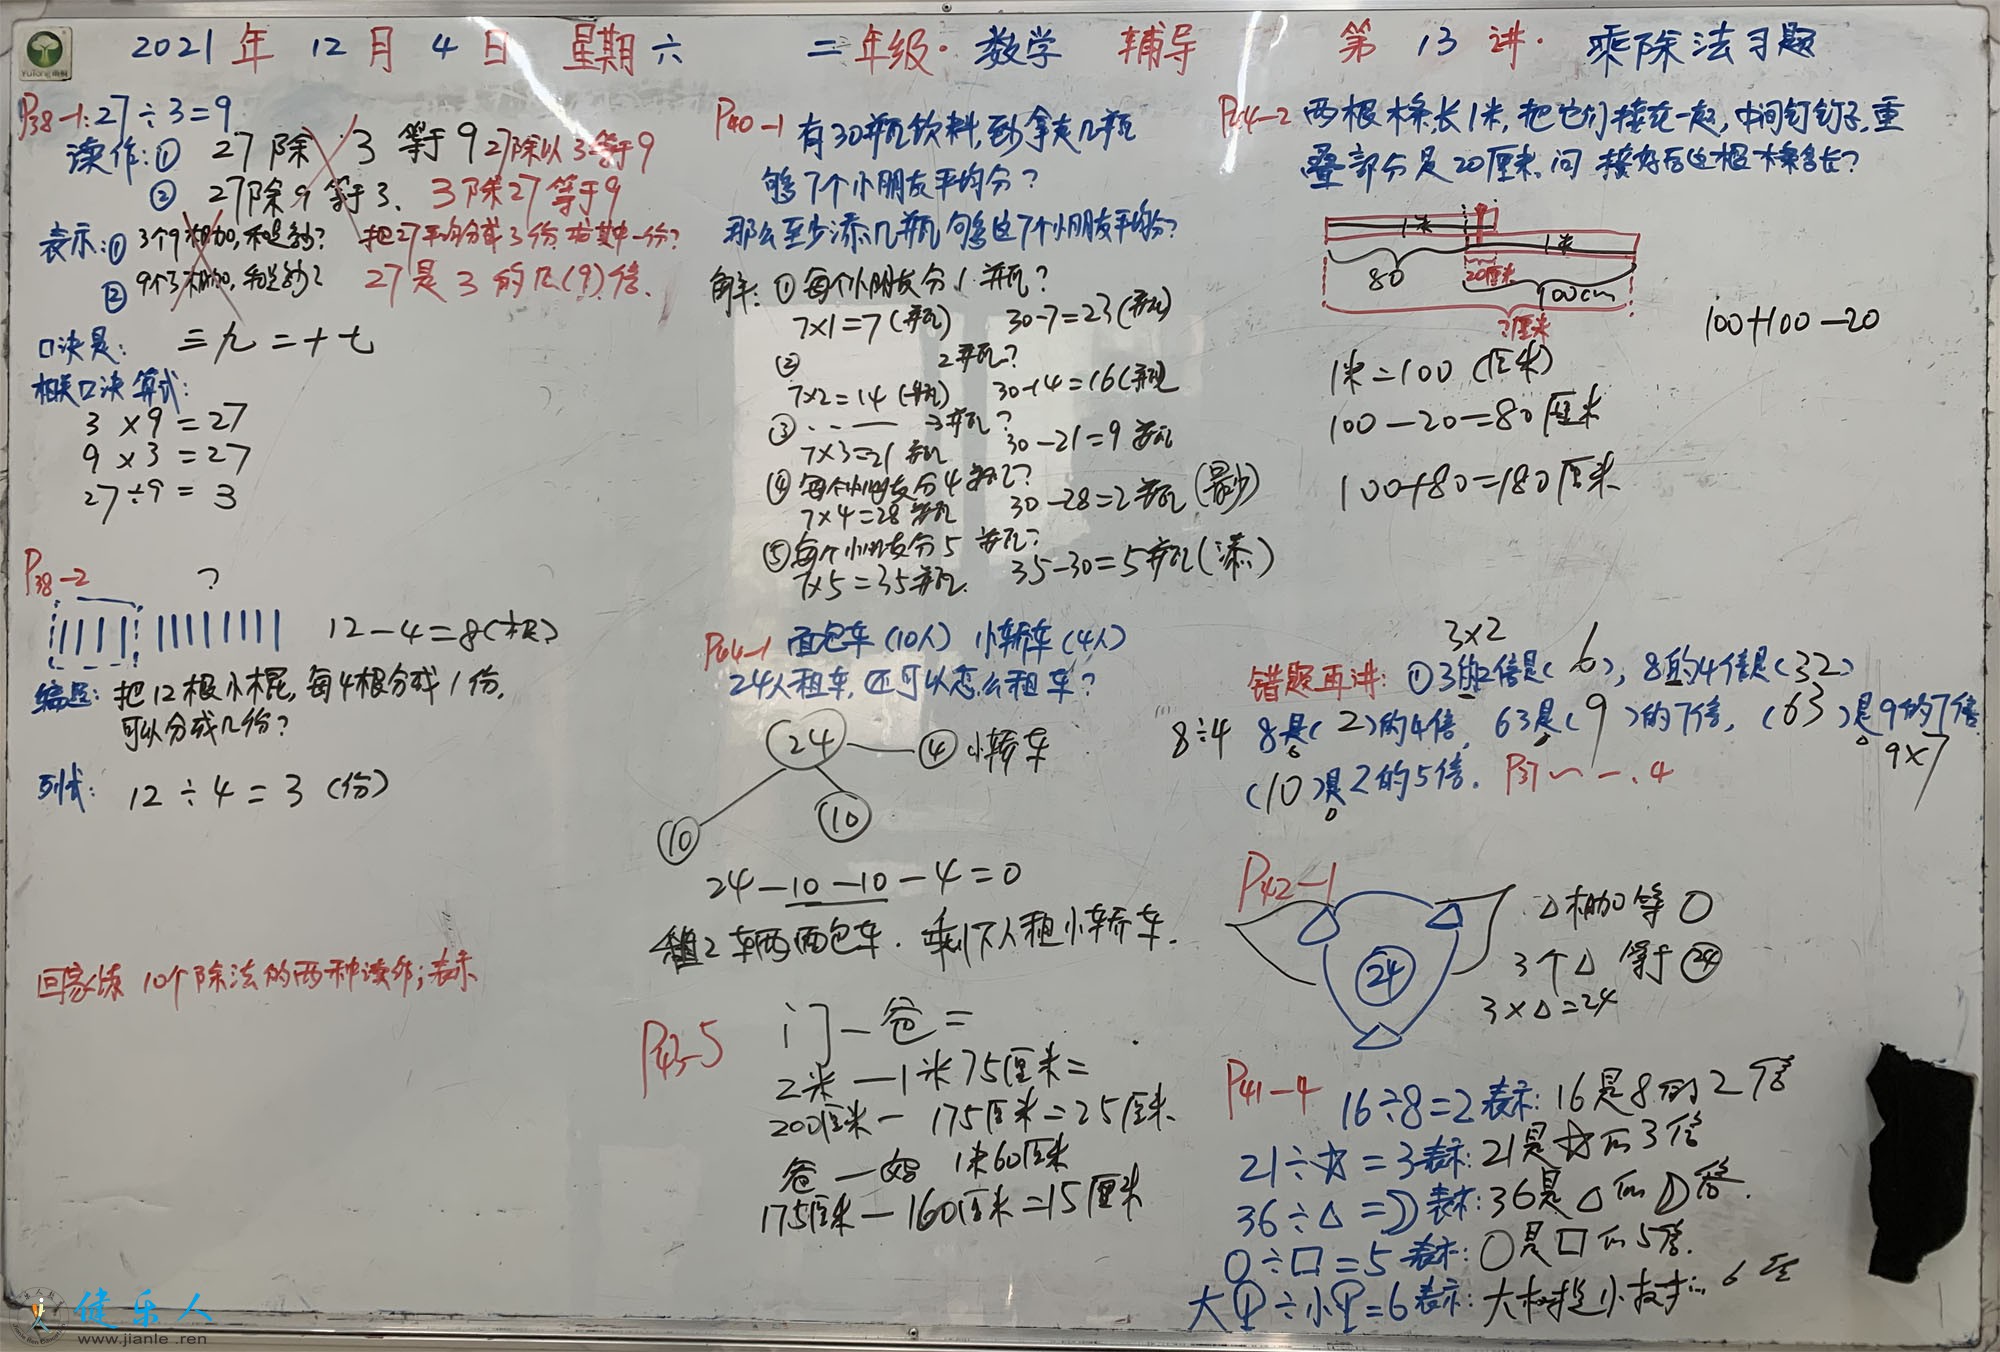 2021年 12月 4日 星期六 二年级·数学 辅导 第 13 讲· 乘除法习题
YuTong
P38-1: 27÷3=9
读作:① 27除 3 等于9 27除以3等于9
② 27除9等于3、 3除27等于9
表示:① 3个9相加,和是多少? 把27平均分成3份,
② 9个3相加,和是多少? 27是3的几(9)倍.
口决是: 三九二十七
相关口决算式:
3×9=27
9×3=27
27÷9=3
P38-2 ?
12-4=8(根)
编题: 把12根小棍,每4根分成1份,
可以分成几份?
列式: 12÷4=3 (份)
回家练 10个除法的两种读作;表示
P40-1 有30瓶饮料,至少拿走几瓶
够7个小朋友平均分?
那么至少添几瓶够这7个小朋友平均分?
解: ①每个小朋友分1瓶?
7×1=7(瓶) 30-7=23(瓶)
② 2瓶?
7×2=14(瓶) 30-14=16(瓶)
③ 3瓶?
7×3=21瓶 30-21=9瓶
④每个小朋友分4瓶?
7×4=28瓶 30-28=2瓶(最少)
⑤每个小朋友分5瓶?
7×5=35瓶. 35-30=5瓶(添)
P44-1 面包车(10人) 小轿车(4人)
24人租车,还可以怎么租车?
24 4 小轿车
10 10
24-10-10-4=0
租2车两面包车. 剩下人租小轿车.
P43-5 门-爸=
2米-1米75厘米=
200厘米-175厘米=25厘米.
爸-妈 1米60厘米
175厘米-160厘米=15厘米
P44-2 两根木条长1米,把它们接在一起,中间钉钉子,重
叠部分是20厘米.问 接好后这根木条多长?
1米
1米
80 20厘米 100cm
?厘米
100+100-20
1米=100(厘米)
100-20=80厘米
100+80=180厘米
3×2
错题再讲: ①3的2倍是(6), 8的4倍是(32)
8÷4 8是(2)的4倍, 63是(9)的7倍, (63)是9的7倍
9×7
(10)是2的5倍. P37 一、4
P42-1
24
△相加等〇
3个△ 等于24
3×△=24
P41-4 16÷8=2 表示: 16是8的2倍
21÷☆=3 表示: 21是☆的3倍
36÷△= 表示: 36是△的 倍.
〇÷口=5 表示: 〇是口的5倍.
大 ÷小 =6 表示: 大树是小树的6倍
健乐人
www.jianle.ren